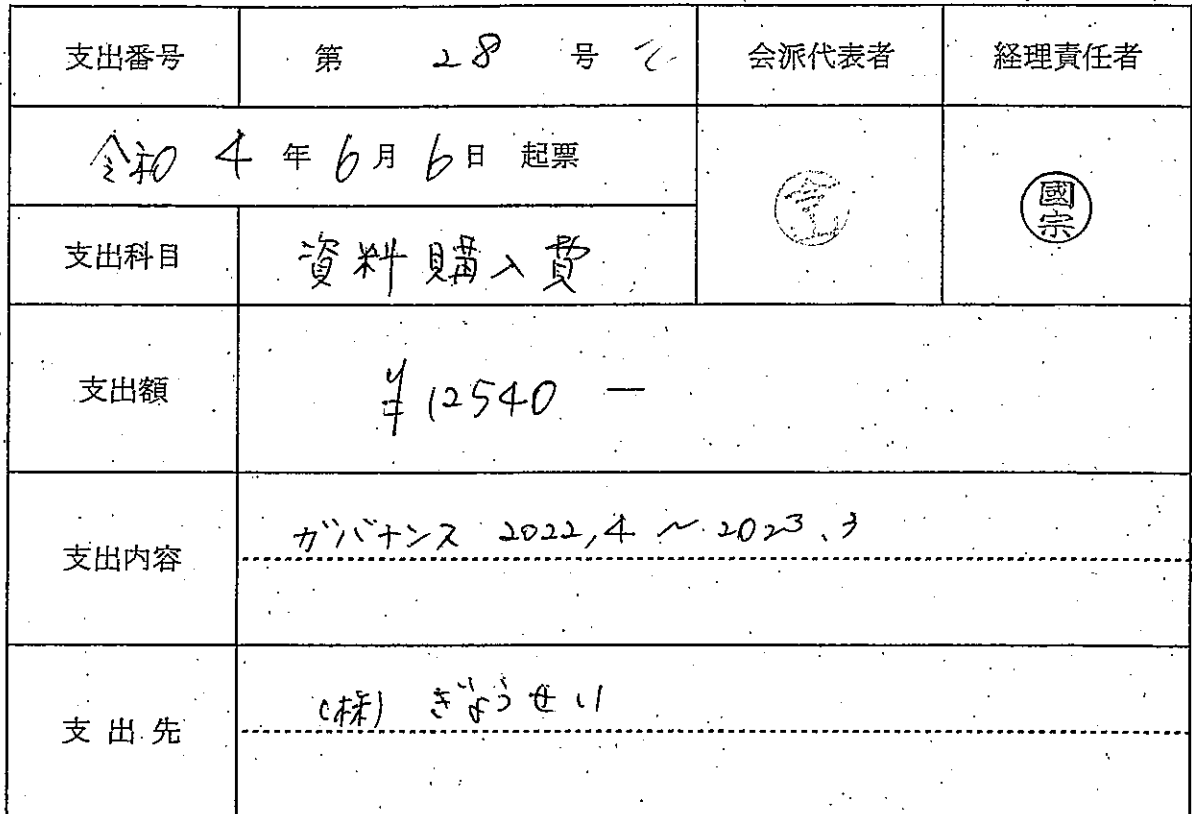 支出番号 第 28 号 会派代表者 経理責任者
令和 4 年 6 月 6 日 起票
國宗
支出科目 資料購入費
支出額 ¥12540 ―
支出内容 ガバナンス 2022,4 〜 2023.3
支出先 (株) ぎょうせい